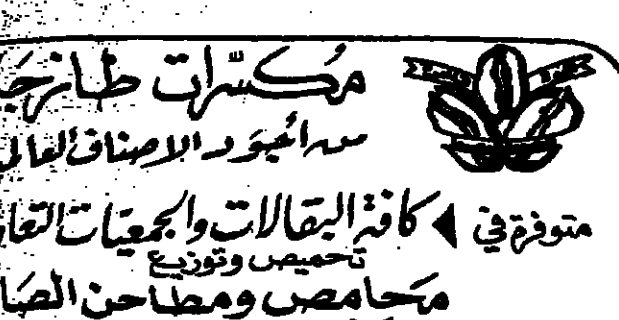 مكسّرات طازجـ
من أجود الاصناف العالمـ
متوفرة في كافة البقالات والجمعيات التعا
تحميص وتوزيع
محامص ومطاحن الصا